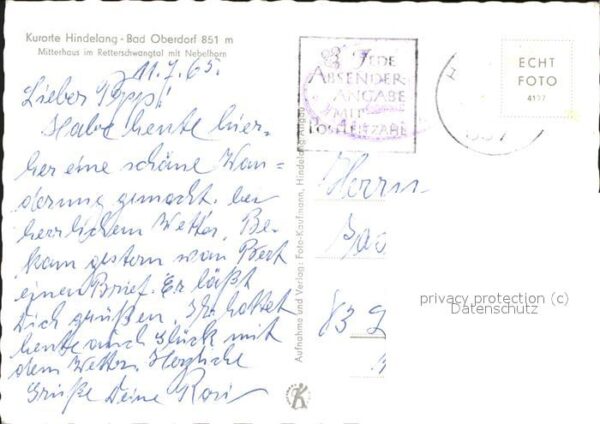 Kurorte Hindelang - Bad Oberdorf 851 m
Mitterhaus im Retterschwangtal mit Nebelhorn
11.7.65.
Lieber
Habe heute hier-
her eine schöne Wan=
derung gemacht bei
herrlichem Wetter. Be-
kam gestern von Bert
einen Brief. Er läßt
Dich grüßen. Ihr hattet
heute auch Glück mit
dem Wetter. Herzliche
Grüße Deine Rosi
JEDE
ABSENDER-
ANGABE
MIT
POSTLEITZAHL
ECHT
FOTO
4137
Aufnahme und Verlag: Foto-Kaufmann, Hindelang-Allgäu
Herrn
83
privacy protection (c)
Datenschutz
K